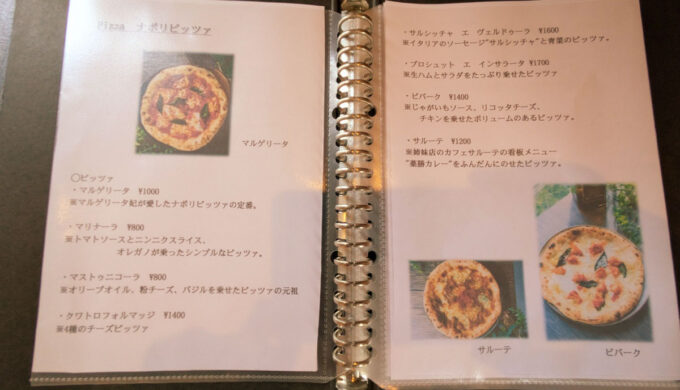 Pizza ナポリピッツァ
マルゲリータ
○ピッツァ
・マルゲリータ ¥1000
※マルゲリータ妃が愛したナポリピッツァの定番。
・マリナーラ ¥800
※トマトソースとニンニクスライス、
オレガノが乗ったシンプルなピッツァ。
・マストゥニコーラ ¥800
※オリーブオイル、粉チーズ、バジルを乗せたピッツァの元祖
・クワトロフォルマッジ ¥1400
※4種のチーズピッツァ
・サルシッチャ エ ヴェルドゥーラ ¥1600
※イタリアのソーセージ"サルシッチャ"と青菜のピッツァ。
・プロシュット エ インサラータ ¥1700
※生ハムとサラダをたっぷり乗せたピッツァ
・ビバーク ¥1400
※じゃがいもソース、リコッタチーズ、
チキンを乗せたボリュームのあるピッツァ。
・サルーテ ¥1200
※姉妹店のカフェサルーテの看板メニュー
"薬膳カレー"をふんだんにのせたピッツァ。
サルーテ
ビバーク